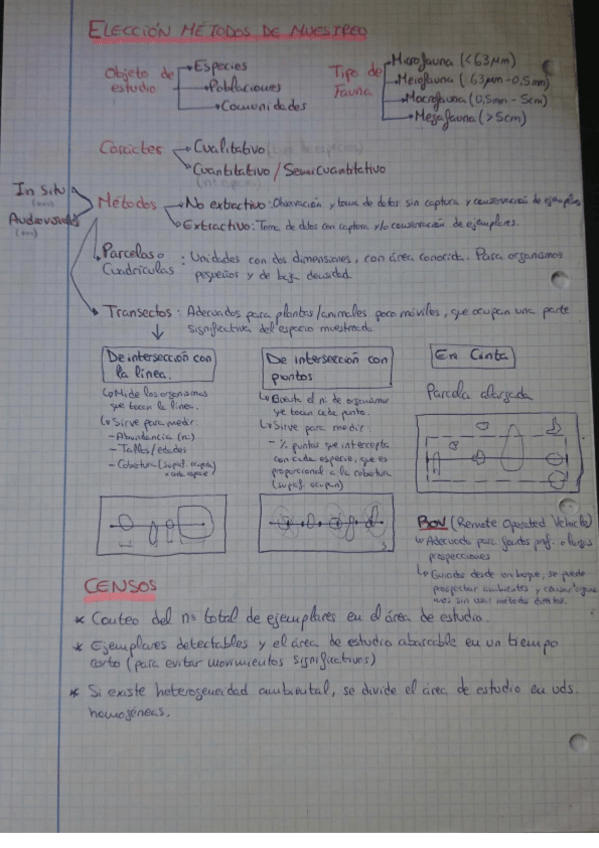 ELECCIÓN MÉTODOS DE MUESTREO
Objeto de estudio
Especies
Poblaciones
Comunidades
Tipo de Fauna
Microfauna (<63μm)
Meiofauna (63μm-0,5mm)
Macrofauna (0,5mm - 5cm)
Megafauna (>5cm)
Carácter
Cualitativo
Cuantitativo / Semicuantitativo
In Situ
Audiovisuales
Métodos
No extractivo: Observación y toma de datos sin captura y conservación de ejemplares
Extractivo: Toma de datos con captura y/o conservación de ejemplares.
Parcelas o Cuadrículas : Unidades con dos dimensiones, con área conocida. Para organismos
pequeños y de baja densidad.
Transectos : Adecuados para plantas/animales poco móviles, que ocupan una parte
significativa del espacio muestreado
De intersección con
la línea.
Mide los organismos
que tocan la línea.
Sirve para medir:
- Abundancia (nº)
- Tallas/edades
- Cobertura (superf. ocupa
cada especie)
De intersección con
puntos
el nº de organismos
que tocan cada punto.
Sirve para medir:
- % puntos que intercepta
con cada especie, que es
proporcional a la cobertura
(superf. ocupan)
En Cinta
Parcela alargada
ROV (Remote Operated Vehicle)
Adecuado para grandes prof. o largas
prospecciones
Guiados desde un buque, se puede
prospectar ambientes y
sin usar métodos directos.
CENSOS
* Conteo del nº total de ejemplares en el área de estudio.
* Ejemplares detectables y el área de estudio abarcable en un tiempo
corto (para evitar movimientos significativos)
* Si existe heterogeneidad ambiental, se divide el área de estudio en uds.
homogéneas.